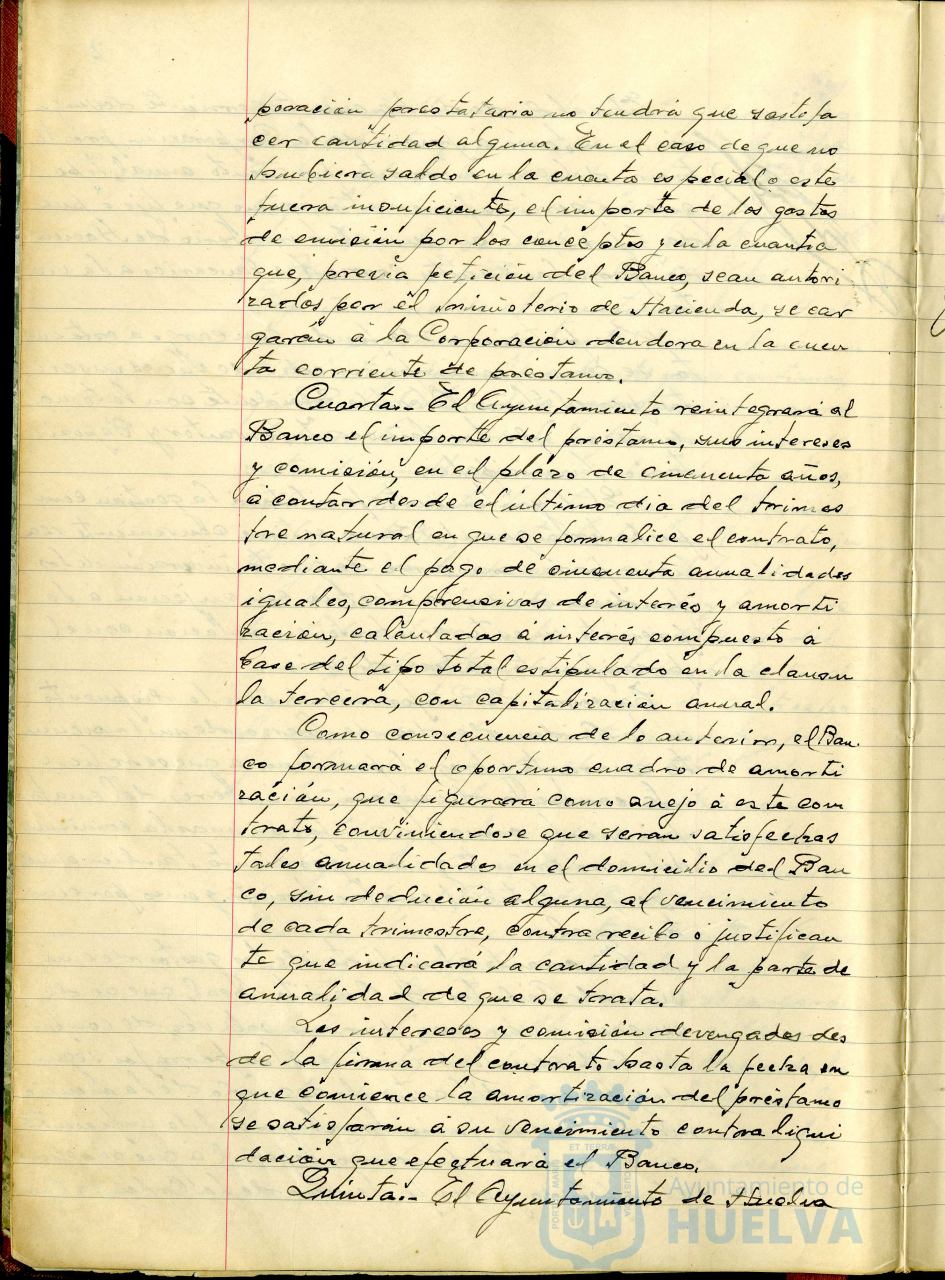 poración prestataria no tendrá que satisfa
cer cantidad alguna. En el caso de que no
hubiera saldo en la cuenta especial o este
fuera insuficiente, el importe de los gastos
de emisión por los conceptos y en la cuantia
que, previa petición del Banco, sean autori
zados por el ministerio de Hacienda, se car
garán á la Corporación deudora en la cuen
ta corriente de préstamo.
Cuarta.- El Ayuntamiento reintegrará al
Banco el importe del préstamo, sus intereses
y comisión, en el plazo de cincuenta años,
á contar desde el último dia del trimes
tre natural en que se formalice el contrato,
mediante el pago de cincuenta anualidades
iguales, comprensivas de interés y amorti
zación, calculadas á interés compuesto á
base del tipo total estipulado en la clausu
la tercera, con capitalización anual.
Como consecuencia de lo anterior, el Ban
co formará el oportuno cuadro de amorti
zación, que figurará como anejo á este con
trato, conviniendose que seran satisfechas
tales anualidades en el domicilio del Ban
co, sin dedución alguna, al vencimiento
de cada trimestre, contra recibo ó justifican
te que indicará la cantidad y la parte de
anualidad de que se trata.
Los intereses y comisión devengados des
de la firma del contrato hasta la fecha en
que comience la amortización del préstamo
se satisfarán á su vencimiento contra liqui
dación que efectuará el Banco.
Quinta.- El Ayuntamiento de Huelva
Ayuntamiento de
HUELVA